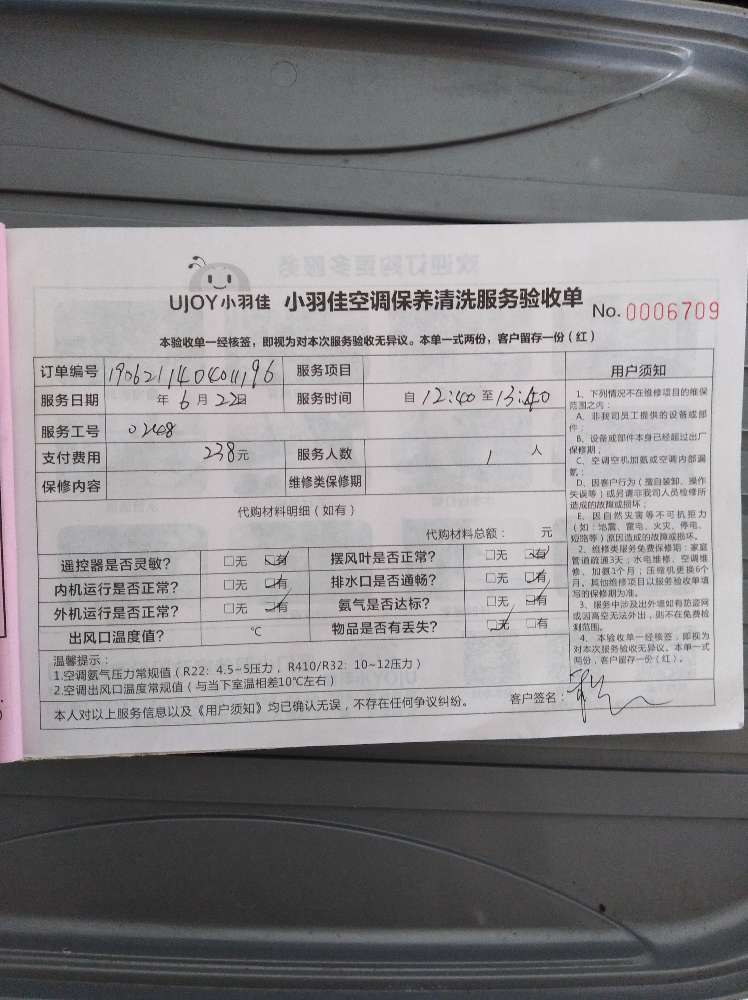 UJOY小羽佳 小羽佳空调保养清洗服务验收单 No. 0006709
本验收单一经核签，即视为对本次服务验收无异议。本单一式两份，客户留存一份（红）
订单编号 190621140401196 服务项目
服务日期 年 6 月 22日 服务时间 自 12:40 至 13:40
服务工号 0248
支付费用 238元 服务人数 1 人
保修内容 维修类保修期
代购材料明细（如有）
代购材料总额： 元
遥控器是否灵敏？ □无 ☑有 摆风叶是否正常？ □无 ☑有
内机运行是否正常？ □无 ☑有 排水口是否通畅？ □无 ☑有
外机运行是否正常？ □无 ☑有 氨气是否达标？ □无 ☑有
出风口温度值？ ℃ 物品是否有丢失？ ☑无 □有
温馨提示：
1.空调氨气压力常规值（R22：4.5~5压力，R410/R32：10~12压力）
2.空调出风口温度常规值（与当下室温相差10℃左右）
本人对以上服务信息以及《用户须知》均已确认无误，不存在任何争议纠纷。 客户签名：
用户须知
1、下列情况不在维修项目的维保
范围之内：
A、非我司员工提供的设备或部
件；
B、设备或部件本身已经超过出厂
保修期；
C、空调空机加氨或空调内部漏
氨；
D、因客户行为（擅自装卸、操作
失误等）或另请非我司人员检修所
造成的故障或损坏；
E、因自然灾害等不可抗拒力
（如：地震、雷电、火灾、停电、
短路等）原因造成的故障或损坏。
2、维修类服务免费保修期：家庭
管道疏通3天；水电维修、空调维
修、加氨3个月；压缩机更换6个
月。其他维修项目以服务验收单填
写的保修期为准。
3、服务中涉及出外墙如有防盗网
或因高空无法外出，则不在免费检
测范围。
4、本验收单一经核签，即视为
对本次服务验收无异议。本单一式
两份，客户留存一份（红）。